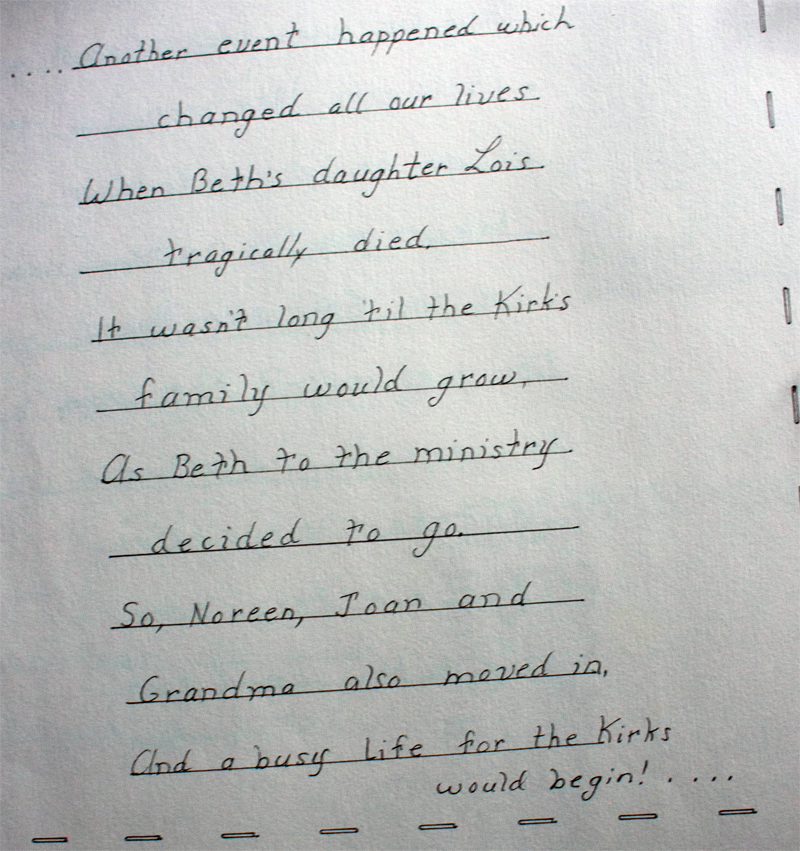 ....Another event happened which
changed all our lives
When Beth's daughter Lois
tragically died.
It wasn't long 'til the Kirk's
family would grow,
As Beth to the ministry
decided to go.
So, Noreen, Joan and
Grandma also moved in,
And a busy life for the Kirks
would begin!....